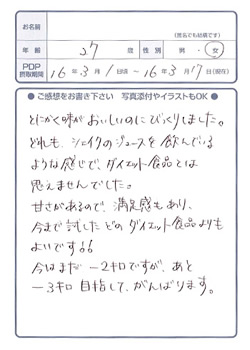 お名前
(匿名でも結構です)
年齢 27 歳 性別 男・女
PDP摂取期間 16年3月1日頃～16年3月17日(現在)
● ご感想をお書き下さい 写真添付やイラストもOK ●
とにかく味がおいしいのにびっくりしました。
どれも、シェイクのジュースを飲んでいる
ような感じで、ダイエット食品とは
思えませんでした。
甘さがあるので、満足感もあり、
今まで試したどのダイエット食品よりも
よいです!!
今はまだ －2キロですが、あと
－3キロ目指して、がんばります。